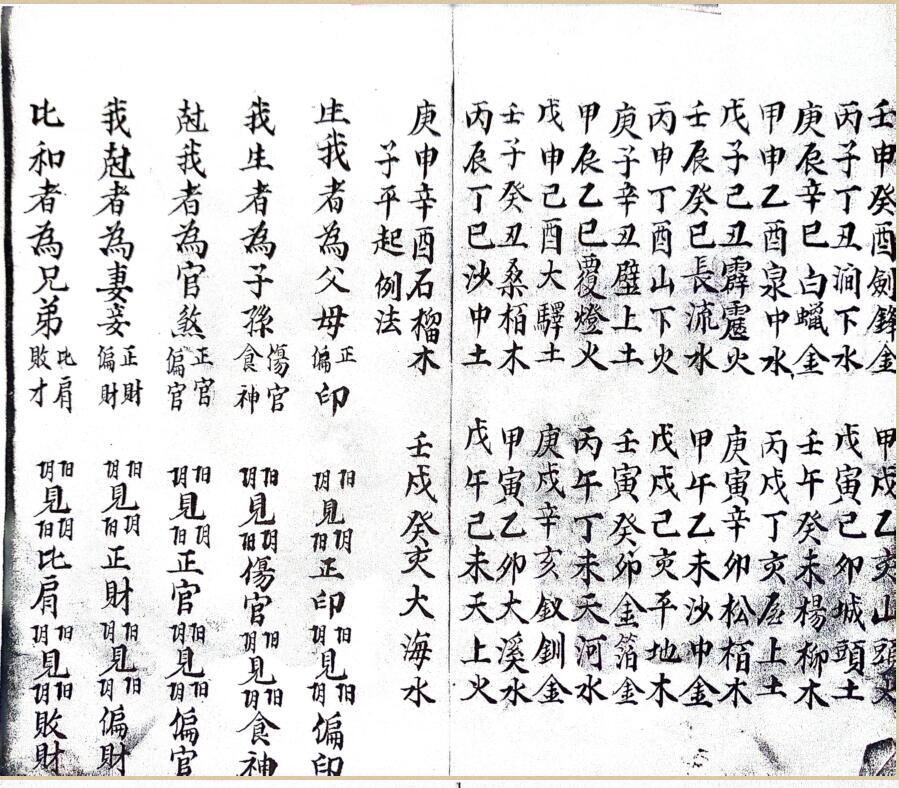 壬申癸酉劍鋒金　甲戌乙亥山頭火
丙子丁丑澗下水　戊寅己卯城頭土
庚辰辛巳白蠟金　壬午癸未楊柳木
甲申乙酉泉中水　丙戌丁亥屋上土
戊子己丑霹靂火　庚寅辛卯松栢木
壬辰癸巳長流水　甲午乙未沙中金
丙申丁酉山下火　戊戌己亥平地木
庚子辛丑壁上土　壬寅癸卯金箔金
甲辰乙巳覆燈火　丙午丁未天河水
戊申己酉大驛土　庚戌辛亥釵釧金
壬子癸丑桑栢木　甲寅乙卯大溪水
丙辰丁巳沙中土　戊午己未天上火
庚申辛酉石榴木　壬戌癸亥大海水
子平起例法
生我者為父母正偏印　阳阴見阴阳正印阳阴見阳阴偏印
我生者為子孫傷官食神　阳阴見阴阳傷官阳阴見阳阴食神
尅我者為官煞正官偏官　阳阴見阴阳正官阳阴見阳阴偏官
我尅者為妻妾正財偏財　阳阴見阴阳正財阳阴見阳阴偏財
比和者為兄弟比肩敗才　阳阴見阴阳比肩阳阴見阳阴敗財
1